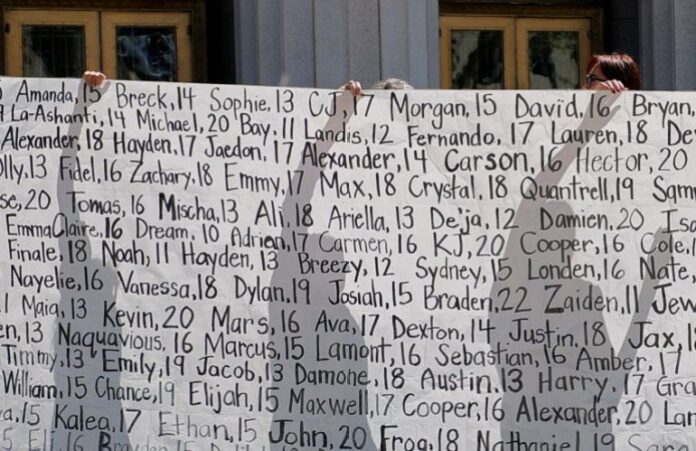 Amanda, 15 Breck, 14 Sophie, 13 CJ, 17 Morgan, 15 David, 16 Bryan,
La-Ashanti, 14 Michael, 20 Bay, 11 Landis, 12 Fernando, 17 Lauren, 18 De
Alexander, 18 Hayden, 17 Jaedon, 17 Alexander, 14 Carson, 16 Hector, 20
olly, 13 Fidel, 16 Zachary, 18 Emmy, 17 Max, 18 Crystal, 18 Quantrell, 19 Sam
se, 20 Tomas, 16 Mischa, 13 Ali, 18 Ariella, 13 De'ja, 12 Damien, 20 Isa
EmmaClaire, 16 Dream, 10 Adrien, 17 Carmen, 16 KJ, 20 Cooper, 16 Cole,
Finale, 18 Noah, 11 Hayden, 13 Breezy, 12 Sydney, 15 Londen, 16 Nate,
Nayelie, 16 Vanessa, 18 Dylan, 19 Josiah, 15 Braden, 22 Zaiden, 11 Jew
Maia, 13 Kevin, 20 Mars, 16 Ava, 17 Dexton, 14 Justin, 18 Jax,
en, 13 Naquavious, 16 Marcus, 15 Lamont, 16 Sebastian, 16 Amber, 17
Timmy, 13 Emily, 19 Jacob, 13 Damone, 18 Austin, 13 Harry, 17 Gra
William, 15 Chance, 19 Elijah, 15 Maxwell, 17 Cooper, 16 Alexander, 20 Lan
a, 15 Kalea, 17 Ethan, 15 John, 20 Frog, 18 Nathaniel, 19 Sara
5 Eli, 16 Brayden